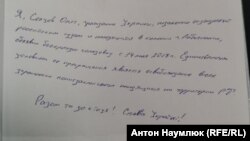 Я, Сенцов Олег, гражданин Украины, незаконно осужденный
российским судом и находящийся в колонии г. Лабытнанги,
объявляю бессрочную голодовку с 14 мая 2018 г. Единственным
условием ее прекращения является освобождение всех
украинских политзаключенных находящихся на территории РФ.
Разом та до кінця! Слава Україні!
Антон Наумлюк (RFE/RL)